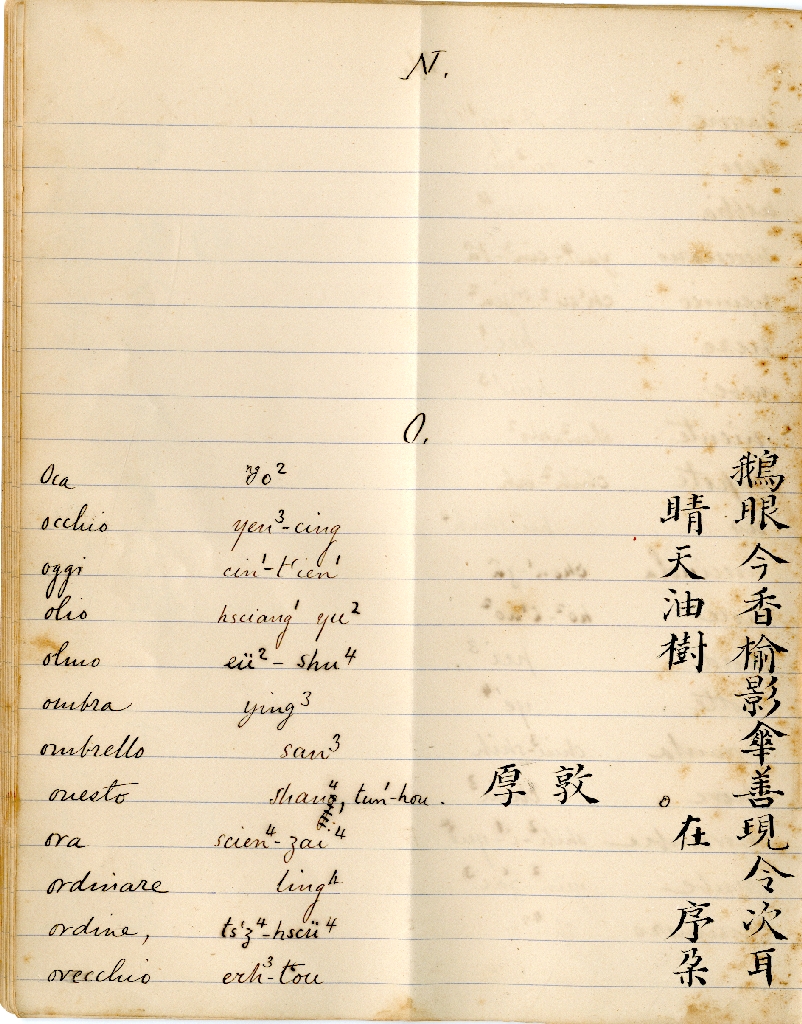 N.
O.
Oca yo² 鵝
occhio yen³-cing 眼睛
oggi cin¹-t'ien¹ 今天
olio hsciang¹ yu² 香油
olmo eü²-shu⁴ 榆樹
ombra ying³ 影
ombrello san³ 傘
onesto shan⁴, tun¹-hou. 善。敦厚
ora scien⁴-zai⁴ 現在
ordinare ling⁴ 令
ordine, ts'z⁴-hscü⁴ 次序
orecchio erh³-tou 耳朶